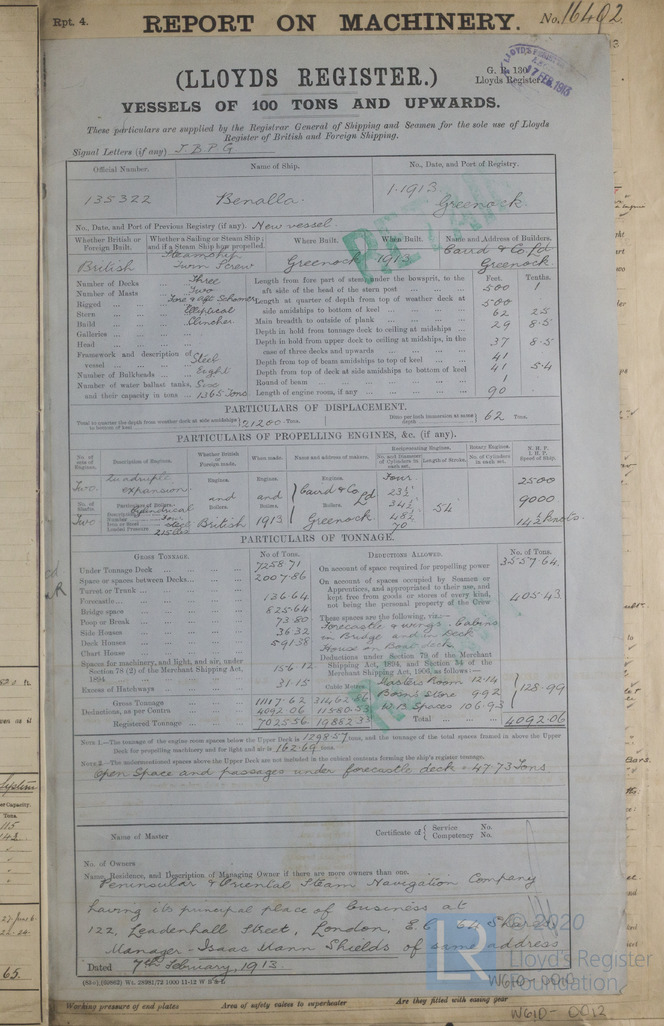 Rpt. 4.
REPORT ON MACHINERY.
No. 16492
(LLOYDS REGISTER.)
G. R. 130
Lloyds Register
17 FEB 1913
VESSELS OF 100 TONS AND UPWARDS.
These particulars are supplied by the Registrar General of Shipping and Seamen for the sole use of Lloyds
Register of British and Foreign Shipping.
Signal Letters (if any) J.B.P.G
Official Number. Name of Ship. No., Date, and Port of Registry.
135322 Benalla. 1.1913. Greenock.
No., Date, and Port of Previous Registry (if any). New vessel.
Whether British or Foreign Built. Whether a Sailing or Steam Ship; and if a Steam Ship how propelled. Where Built. When Built. Name and Address of Builders.
British Steamship Twin Screw Greenock 1913 Caird & Co Ld Greenock.
Number of Decks ... Three
Number of Masts ... Two
Rigged ... Fore & Aft Schooner
Stern ... Elliptical
Build ... Clincher
Galleries ...
Head ...
Framework and description of vessel ... Steel
Number of Bulkheads ... Eight
Number of water ballast tanks, Six
and their capacity in tons ... 1365 Tons
Feet. Tenths.
Length from fore part of stem, under the bowsprit, to the aft side of the head of the stern post ... 500 1
Length at quarter of depth from top of weather deck at side amidships to bottom of keel ... 500
Main breadth to outside of plank ... 62 25
Depth in hold from tonnage deck to ceiling at midships ... 29 8.5
Depth in hold from upper deck to ceiling at midships, in the case of three decks and upwards ... 37 8.5
Depth from top of beam amidships to top of keel ... 41
Depth from top of deck at side amidships to bottom of keel 41 5.4
Round of beam ... 1
Length of engine room, if any ... 90
PARTICULARS OF DISPLACEMENT.
Total to quarter the depth from weather deck at side amidships to bottom of keel 21200 Tons. Ditto per inch immersion at same depth 62 Tons.
PARTICULARS OF PROPELLING ENGINES, &c. (if any).
No. of sets of Engines. Description of Engines. Whether British or Foreign made. When made. Name and address of makers. Reciprocating Engines. No. and Diameter of Cylinders in each set. Length of Stroke. Rotary Engines. No. of Cylinders in each set. N. H. P. I. H. P. Speed of Ship.
Two Quadruple expansion Engines. Engines. Engines. Four 2500
No. of Shafts. Particulars of Boilers. and and Caird & Co Ld 23½ 9000
Description Cylindrical Boilers. Boilers. Boilers. 34½ 54 14½ knots.
Number Four 48½
Iron or Steel Steel 70
Loaded Pressure 215 lbs
Two British 1913 Greenock.
PARTICULARS OF TONNAGE.
GROSS TONNAGE. No of Tons.
Under Tonnage Deck ... 7258.71
Space or spaces between Decks ... 2007.86
Turret or Trunk ...
Forecastle ... 136.64
Bridge space ... 825.64
Poop or Break ... 73.80
Side Houses ... 36.32
Deck Houses ... 591.38
Chart House ...
Spaces for machinery, and light, and air, under Section 78 (2) of the Merchant Shipping Act, 1894 ... 156.12
Excess of Hatchways ... 31.15 Cubic Metres.
Gross Tonnage 11117.62
Deductions, as per Contra 4092.06 11580.53
Registered Tonnage 7025.56 19882.33
DEDUCTIONS ALLOWED. No. of Tons.
On account of space required for propelling power 3557.64
On account of spaces occupied by Seamen or Apprentices, and appropriated to their use, and kept free from goods or stores of every kind, not being the personal property of the Crew 405.43
These spaces are the following, viz.:—
Forecastle & wings. Cabins
in Bridge and in Deck
House on Boat deck
Deductions under Section 79 of the Merchant Shipping Act, 1894, and Section 54 of the Merchant Shipping Act, 1906, as follows:—
Masters Room 12.14
Bosns Store 9.92
W.B. Spaces 106.93
128.99
Total ... 4092.06
NOTE 1.—The tonnage of the engine room spaces below the Upper Deck is 1298.57 tons, and the tonnage of the total spaces framed in above the Upper
Deck for propelling machinery and for light and air is 162.69 tons.
NOTE 2.—The undermentioned spaces above the Upper Deck are not included in the cubical contents forming the ship's register tonnage.
Open Space and passages under forecastle deck = 47.73 Tons.
Name of Master Certificate of { Service No. Competency No.
No. of Owners
Name, Residence, and Description of Managing Owner if there are more owners than one.
Peninsular & Oriental Steam Navigation Company
having its principal place of business at
122, Leadenhall Street, London, E.C. 64 Shares
Manager - Isaac Mann Shields of same address
Dated 7th February, 1913.
© 2020
LR
Lloyd's Register
Foundation
W610-0010
Working pressure of end plates Area of safety valves to superheater Are they fitted with easing gear
W610-0012